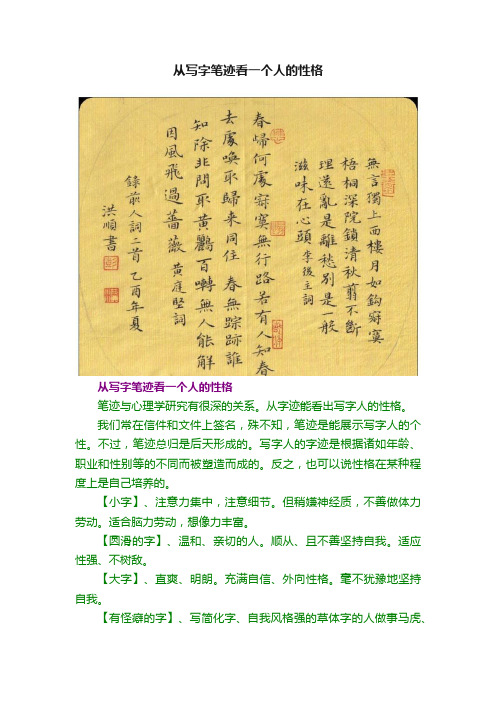 从写字笔迹看一个人的性格
無言獨上西樓月如鈎寂寞
梧桐深院鎖清秋翦不斷
理還亂是離愁别是一般
滋味在心頭 李後主詞
春歸何處寂寞無行路若有人知春
去處喚取歸来同住 春無踪跡誰
知除非問取黄鸝百囀無人能解
因風飛過薔薇 黄庭堅詞
錄前人詞二首 乙酉年夏
洪順書
从写字笔迹看一个人的性格
笔迹与心理学研究有很深的关系。从字迹能看出写字人的性格。
我们常在信件和文件上签名，殊不知，笔迹是能展示写字人的个
性。不过，笔迹总归是后天形成的。写字人的字迹是根据诸如年龄、
职业和性别等的不同而被塑造而成的。反之，也可以说性格在某种程
度上是自己培养的。
【小字】、注意力集中，注意细节。但稍嫌神经质，不善做体力
劳动。适合脑力劳动，想像力丰富。
【圆滑的字】、温和、亲切的人。顺从、且不善坚持自我。适应
性强、不树敌。
【大字】、直爽、明朗。充满自信、外向性格。毫不犹豫地坚持
自我。
【有怪癖的字】、写简化字、自我风格强的草体字的人做事马虎、